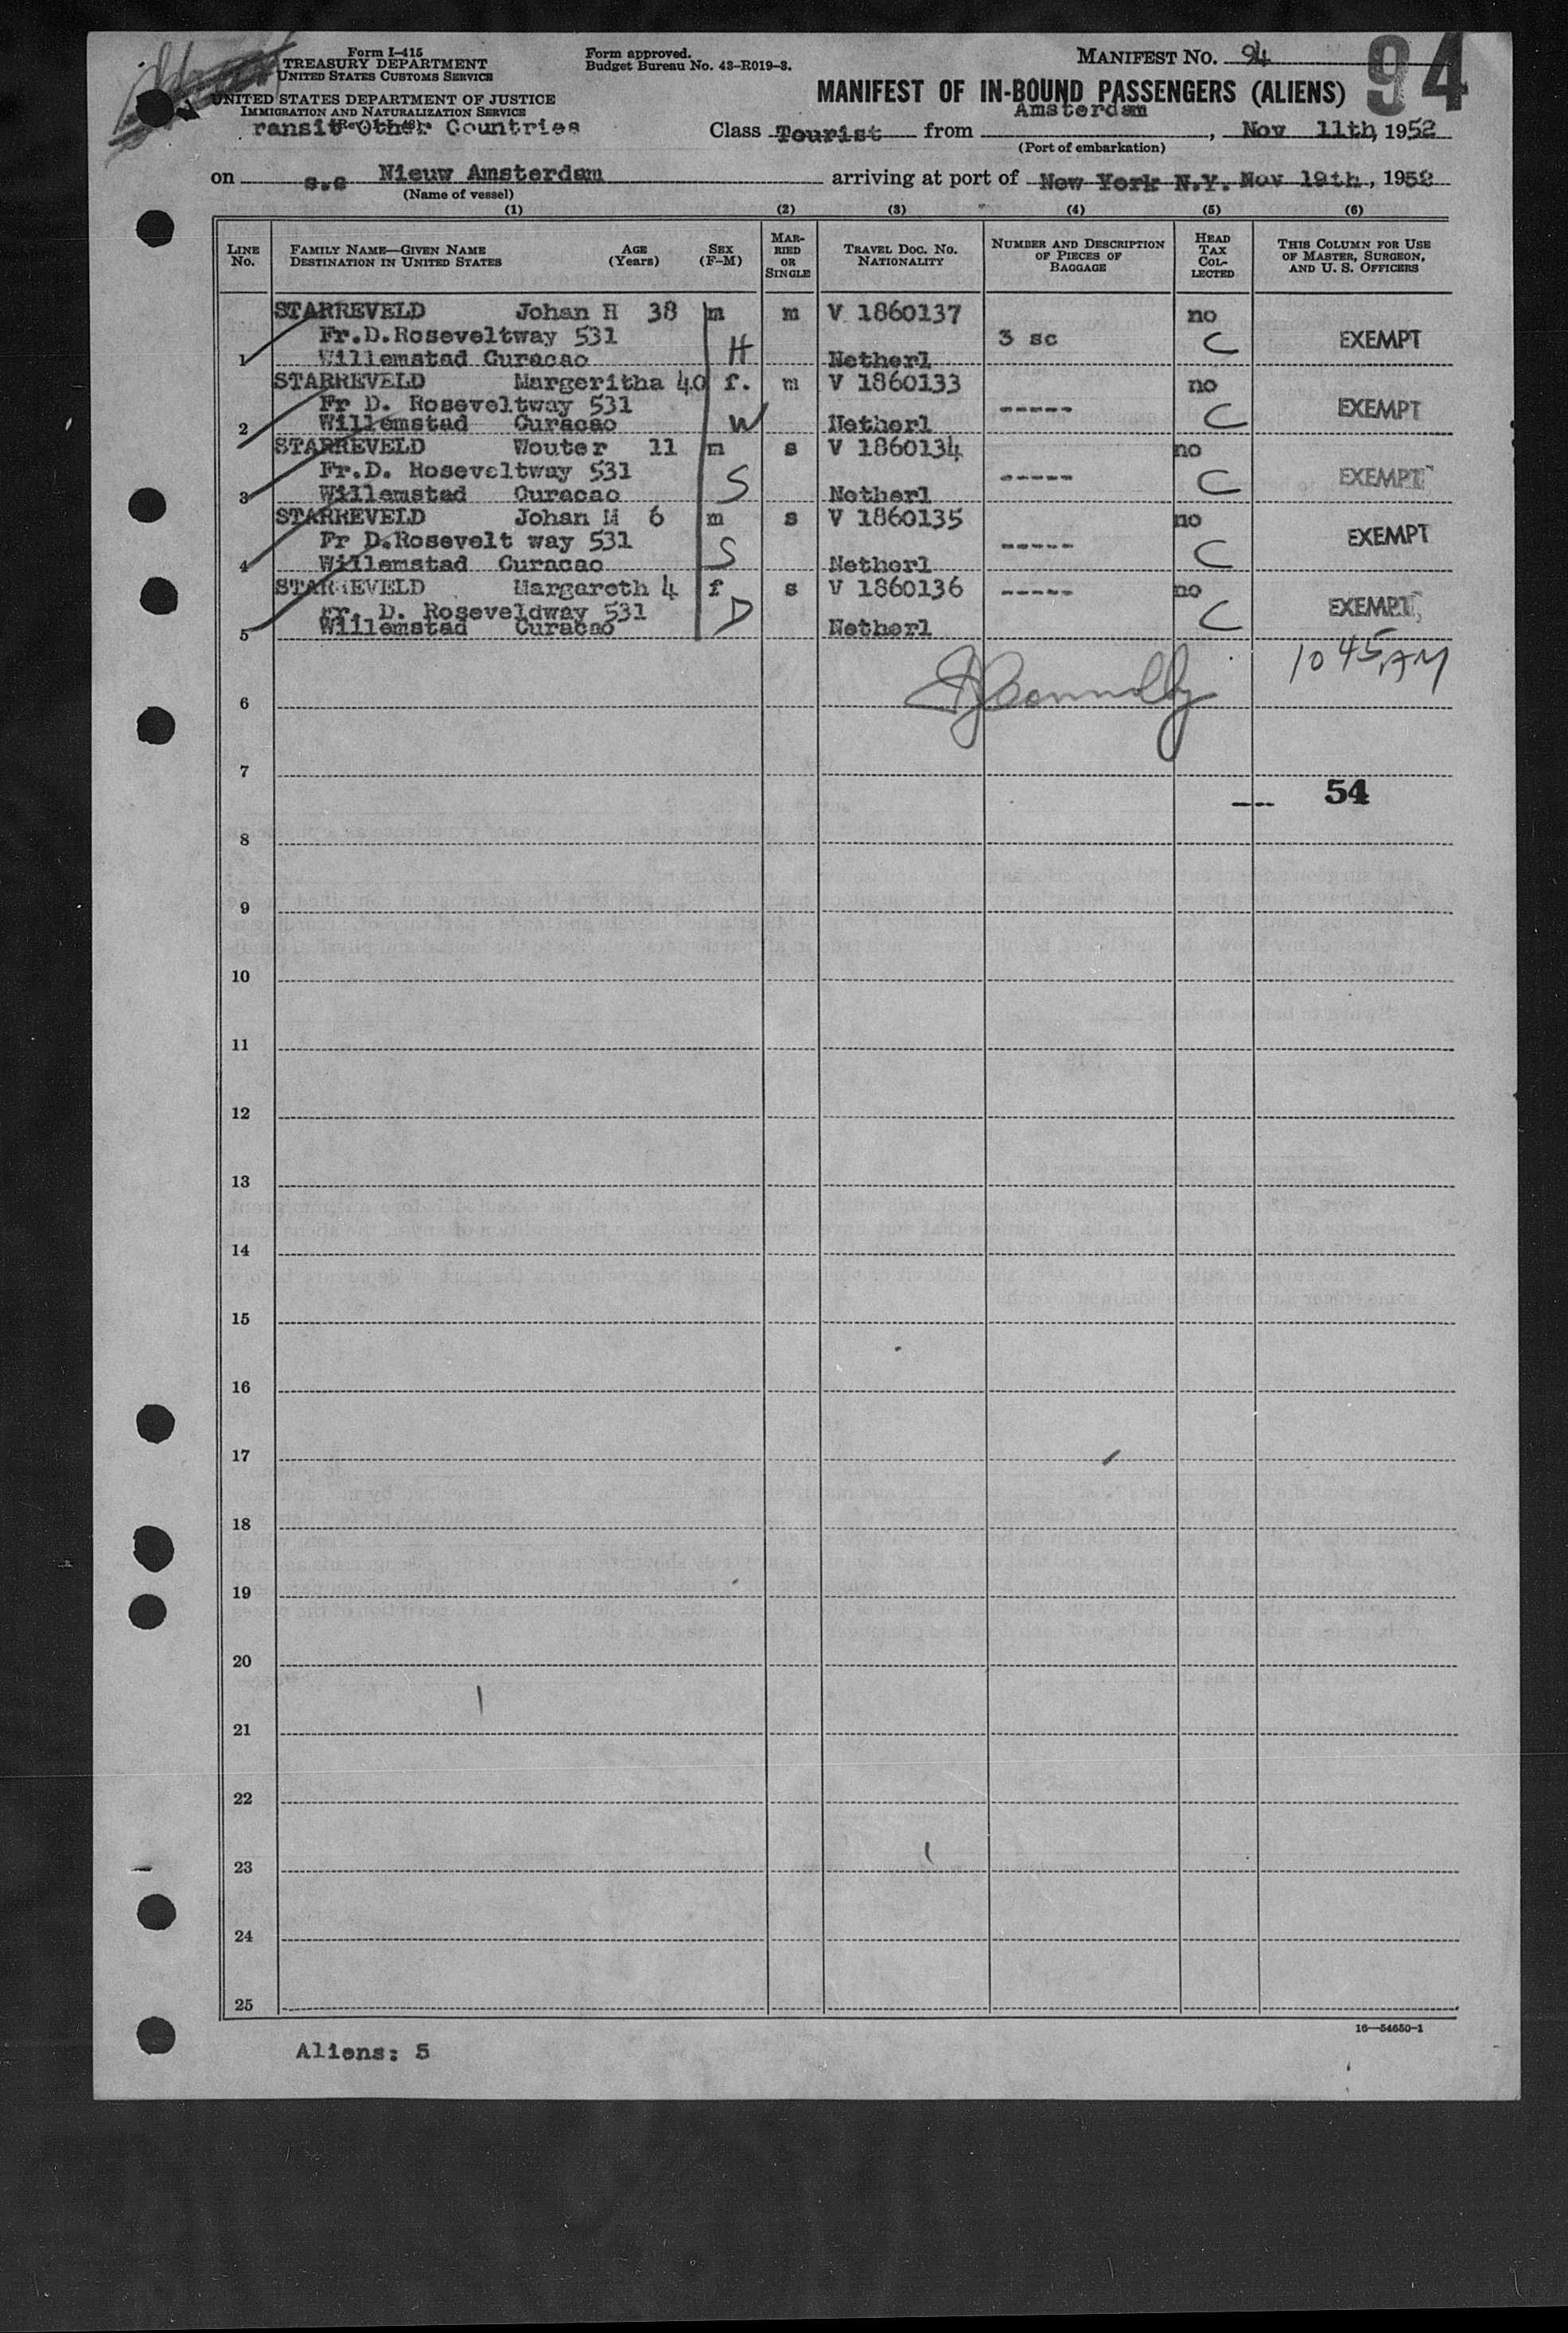 Form I-415
TREASURY DEPARTMENT
UNITED STATES CUSTOMS SERVICE
UNITED STATES DEPARTMENT OF JUSTICE
IMMIGRATION AND NATURALIZATION SERVICE
ransit Other Countries
Form approved.
Budget Bureau No. 43-R019-3.
MANIFEST NO. 94
94
MANIFEST OF IN-BOUND PASSENGERS (ALIENS)
Class Tourist from Amsterdam, Nov 11th, 1952
(Port of embarkation)
on s.s Nieuw Amsterdam arriving at port of New York N.Y. Nov 19th, 1952
(Name of vessel)
(1) (2) (3) (4) (5) (6)
LINE NO.
FAMILY NAME—GIVEN NAME
DESTINATION IN UNITED STATES
AGE (Years)
SEX (F-M)
MARRIED OR SINGLE
TRAVEL DOC. NO. NATIONALITY
NUMBER AND DESCRIPTION OF PIECES OF BAGGAGE
HEAD TAX COLLECTED
THIS COLUMN FOR USE OF MASTER, SURGEON, AND U. S. OFFICERS
STARREVELD Johan H 38 m m V 1860137 no
Fr.D.Roseveltway 531 3 sc C EXEMPT
1 Willemstad Curacao H Netherl
STARREVELD Margeritha 40 f. m V 1860133 no
Fr D. Roseveltway 531 ----- C EXEMPT
2 Willemstad Curacao W Netherl
STARREVELD Wouter 11 m s V 1860134 no
Fr.D. Roseveltway 531 ----- C EXEMPT
3 Willemstad Curacao S Netherl
STARREVELD Johan M 6 m s V 1860135 no
Fr D.Rosevelt way 531 ----- C EXEMPT
4 Willemstad Curacao S Netherl
STARREVELD Margareth 4 f s V 1860136 ----- no
Fr. D. Roseveldway 531 D C EXEMPT
5 Willemstad Curacao Netherl
10 45 AM
6
7
-- 54
8
9
10
11
12
13
14
15
16
17
18
19
20
21
22
23
24
25
16—54650-1
Aliens: 5